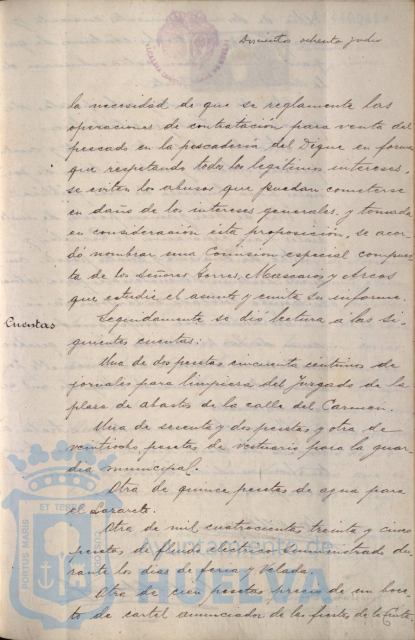 Doscientos ochenta y dos
la necesidad de que se reglamente las
operaciones de contratación para venta del
pescado en la pescadería del Dique en forma
que respetando todos los legítimos intereses,
se eviten los abusos que puedan cometerse
en daño de los intereses generales, y tomada
en consideración esta proposición, se acor-
dó nombrar una Comisión especial compues-
ta de los Señores Torres, Mascarós y Arcos
que estudie el asunto y emita su informe.
Cuentas
Seguidamente se dió lectura a las si-
guientes cuentas:
Una de dos pesetas cincuenta céntimos de
jornales para limpieza del Juzgado de la
plaza de abastos de la calle del Carmen.
Una de sesenta y dos pesetas y otra de
veintiocho pesetas de vestuario para la guar-
dia municipal.
Otra de quince pesetas de agua para
el Lazareto.
Otra de mil cuatrocientas treinta y cinco
pesetas de fluido eléctrico suministrado du-
rante los días de feria y Velada.
Otra de cien pesetas precio de un boce-
to de cartel anunciador de las fiestas de la Cinta
PORTUS MARIS
ET TERRAE
HUELVA